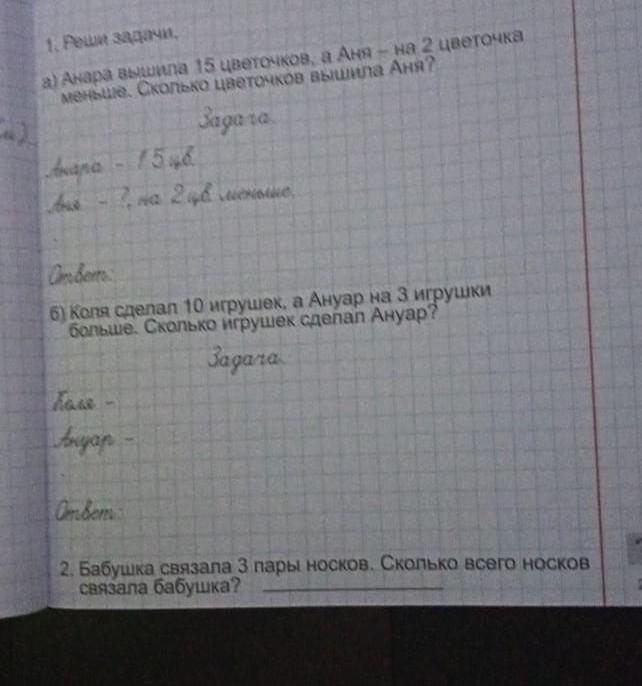 1. Реши задачи.
а) Анара вышила 15 цветочков, а Аня – на 2 цветочка
меньше. Сколько цветочков вышила Аня?
Задача.
Анара - 15 цв.
Аня - ?, на 2 цв. меньше.
Ответ:
б) Коля сделал 10 игрушек, а Ануар на 3 игрушки
больше. Сколько игрушек сделал Ануар?
Задача.
Коля -
Ануар -
Ответ:
2. Бабушка связала 3 пары носков. Сколько всего носков
связала бабушка?